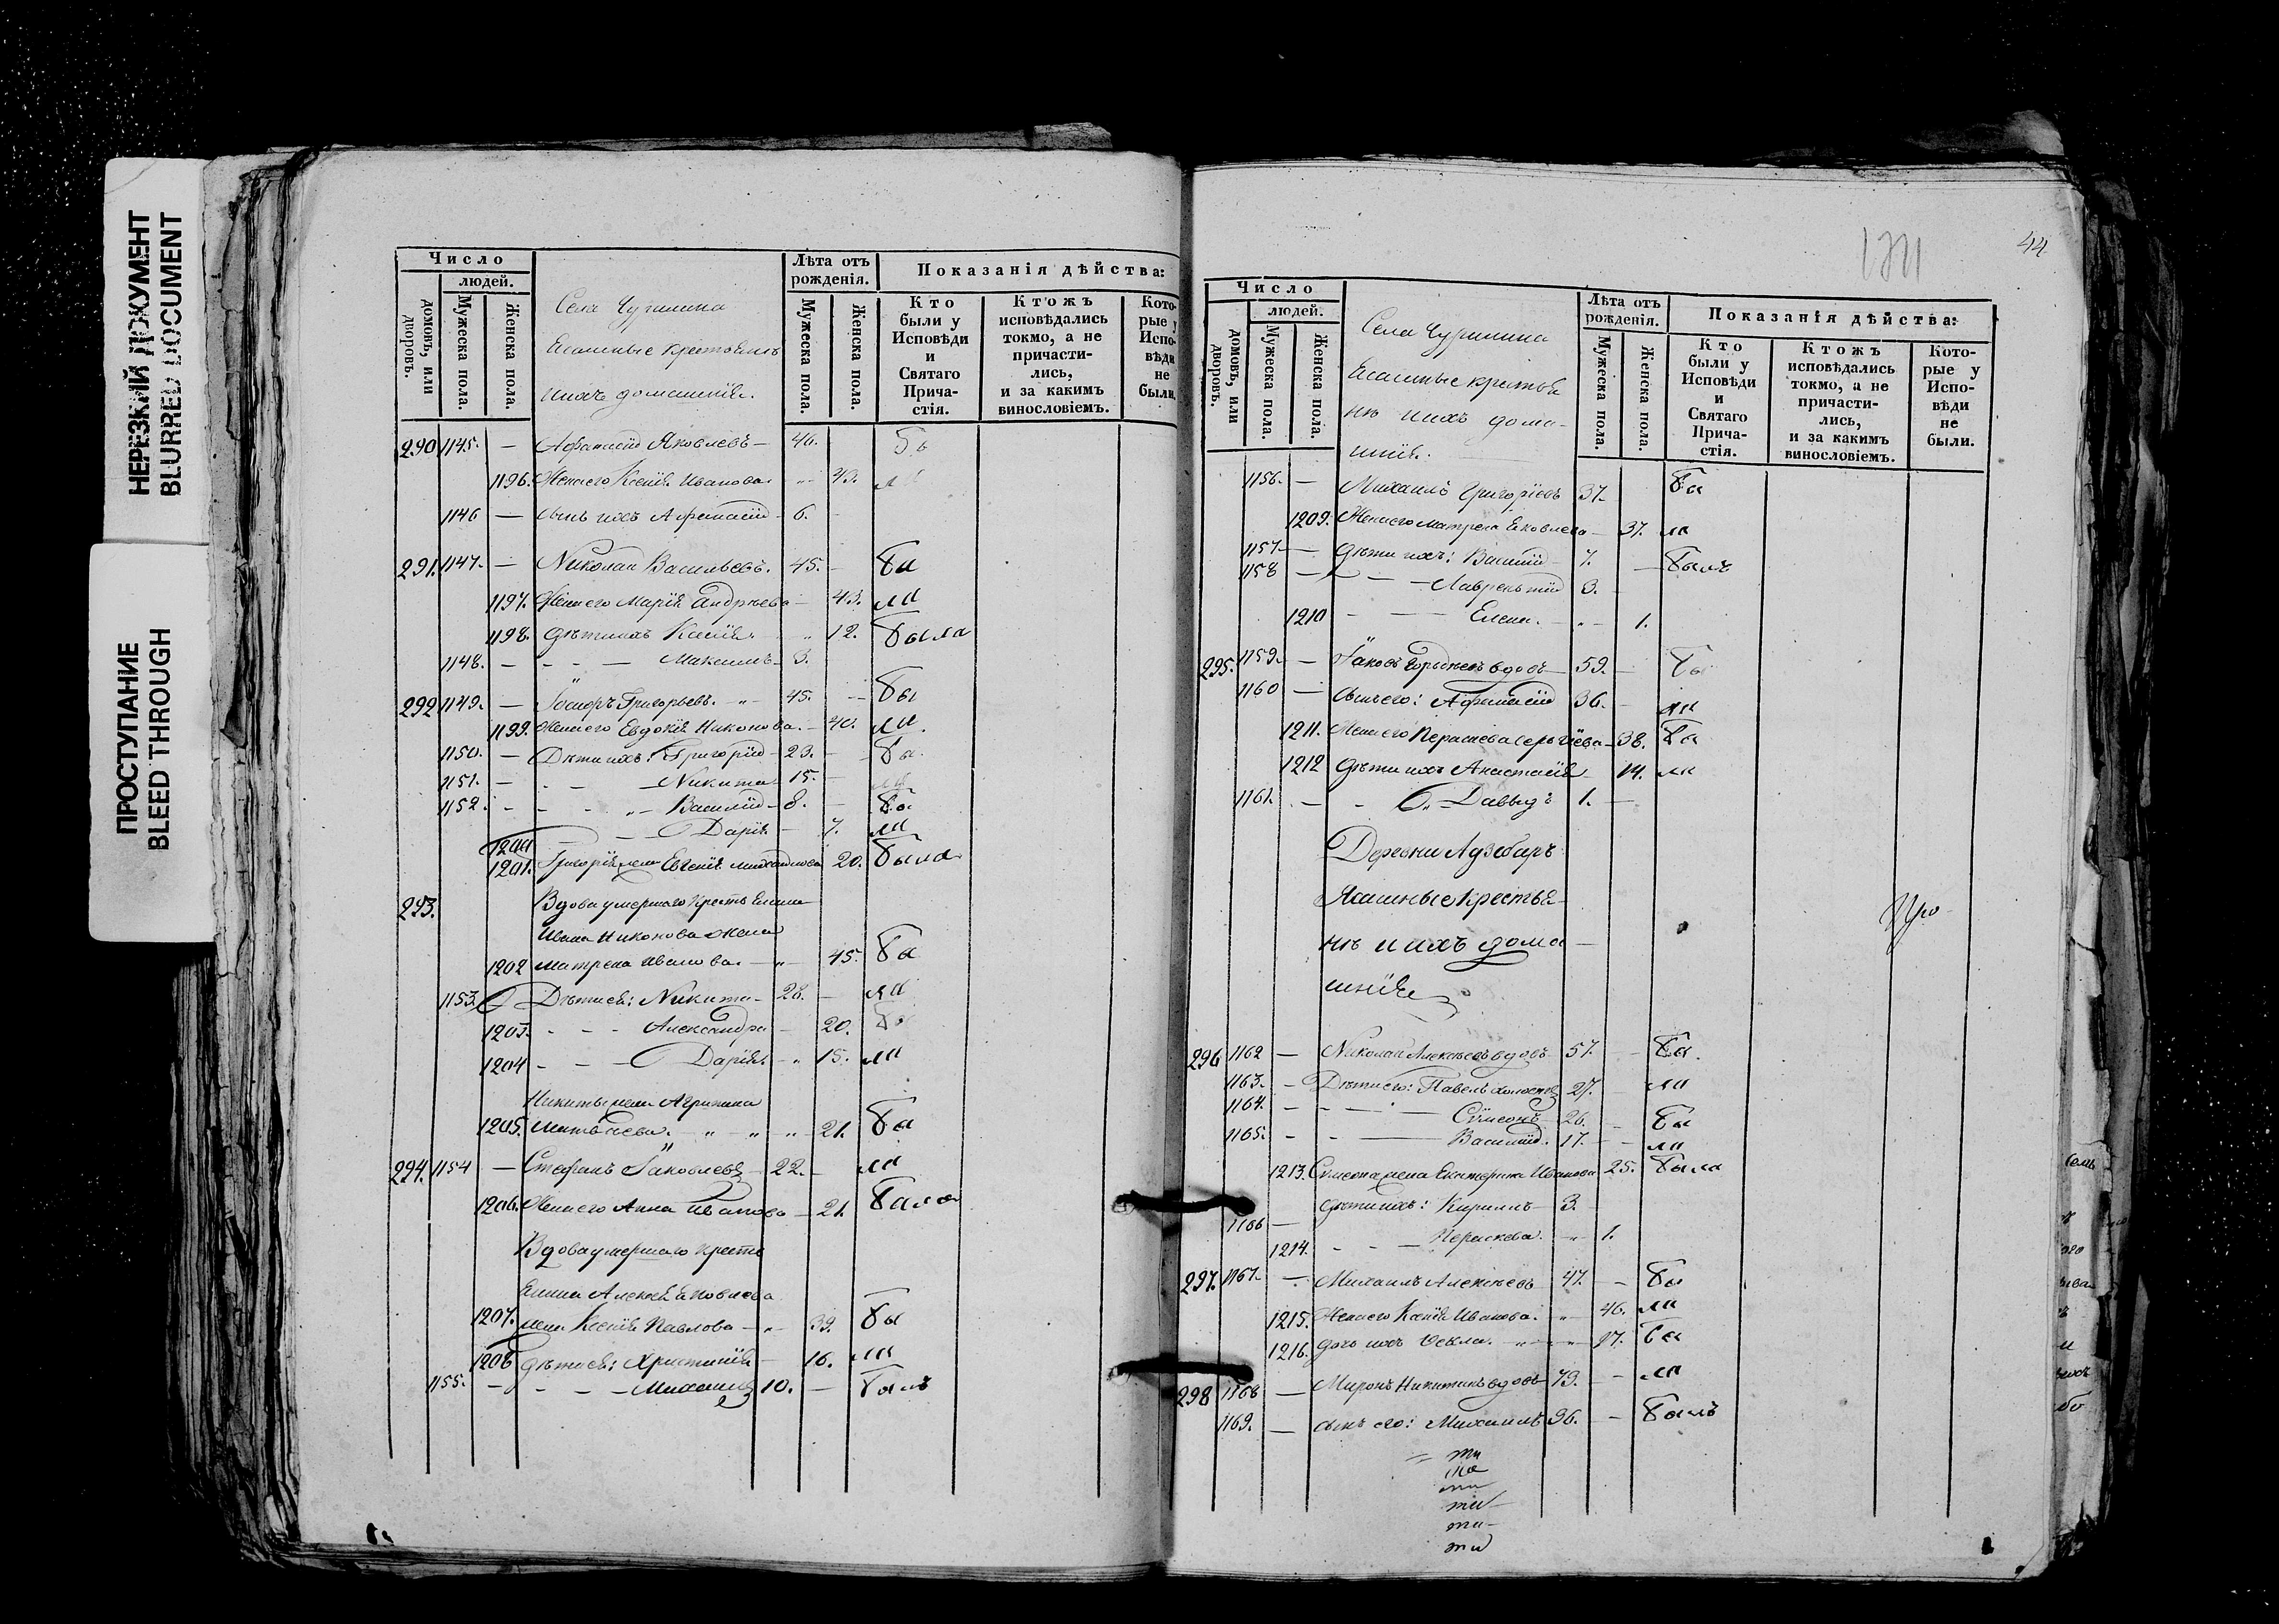 НЕРЕЗКИЙ ДОКУМЕНТ
BLURRED DOCUMENT
ПРОСТУПАНИЕ
BLEED THROUGH
Число
людей.
домовъ, или дворовъ.
Мужеска пола.
Женска пола.
Села Чугинина
Ясашные крестьянъ
и ихъ домашнія.
Лѣта отъ рожденія.
Мужеска пола.
Женска пола.
Показанія дѣйства:
Кто были у Исповѣди и Святаго Причастія.
Ктожъ исповѣдались токмо, а не причастились, и за какимъ винословіемъ.
Которые у Исповѣди не были.
290 1145. — Афанасій Яковлевъ — 46. Бы
1196. Жена его Ксенія Иванова 43. ли
1146 — сынъ ихъ Афанасій 6.
291. 1147. — Николай Васильевъ. 45. Бы
1197. Жена его Марія Андреева 43. ли
1198. дѣти ихъ Ксенія 12. Была
1148. — Максимъ 3.
292 1149. — Григорьевъ. 45. Бы
1199. Жена его Евдокія Никонова. 40. ли
1150. — Дѣти ихъ: Григорій 23. Бы
1151. — Никита 15. ли
1152. — Василій 8. Бы
1200 Дарія 7. ли
1201. Григорія жена Евгенія Михайлова 20. Была
293. Вдова умершаго крестьянина
Ивана Никонова жена
1202 Матрена Иванова. 45. Бы
1153. Дѣти ея: Никита 28. ли
1203. Александра 20. Бы
1204 Дарія 15. ли
Никиты жена Агрипина
1205. Матвѣева. 21. Бы
294. 1154 — Стефанъ Яковлевъ 22. ли
1206. Жена его Анна Иванова 21. Была
Вдова умершаго кресть
янина Алексѣя Яковлева
1207. жена Ксенія Павлова 39. Бы
1208 дѣти ея: Христинія 16. ли
1155. — Михаилъ 10. Былъ
44
Число
людей.
домовъ, или дворовъ.
Мужеска пола.
Женска пола.
Села Чугинина
Ясашные крестья
нѣ и ихъ дома-
шнія.
Лѣта отъ рожденія.
Мужеска пола.
Женска пола.
Показанія дѣйства:
Кто были у Исповѣди и Святаго Причастія.
Ктожъ исповѣдались токмо, а не причастились, и за какимъ винословіемъ.
Которые у Исповѣди не были.
1156. — Михаилъ Григорьевъ 37. Бы
1209. Жена его Матрена Яковлева 37. ли
1157. — Дѣти ихъ: Василій 7. Былъ
1158 — Лаврентій 3.
1210 Елена. 1.
295. 1159. — Яковъ вдовъ 59. Бы
1160 — сынъ его: Афанасій 36. ли
1211. Жена его Параскева Сергѣева 38. Бы
1212 Дѣти ихъ Анастасія 14. ли
1161. — Давыдъ 1.
Деревни Адзебаръ
Ясашные крестья
нѣ и ихъ дома
шнія
296 1162 — Николай Алексѣевъ вдовъ 57. Бы
1163. — Дѣти его: Павелъ холостъ 27. ли
1164. — Сѵмеонъ 26. Бы
1165. — Василій. 17. ли
1213. Сѵмеона жена Екатерина Иванова 25. Была
1166 — дѣти ихъ: Кирилъ 3.
1214. Параскева. 1.
297. 1167. — Михаилъ Алексѣевъ 47. Бы
1215. Жена его Ксенія Иванова. 46. ли
1216. дочь ихъ Ѳекла. 17. Бы
298 1168 — Миронъ Никитинъ вдовъ 73. ли
1169. — сынъ его: Михаилъ 36. Былъ